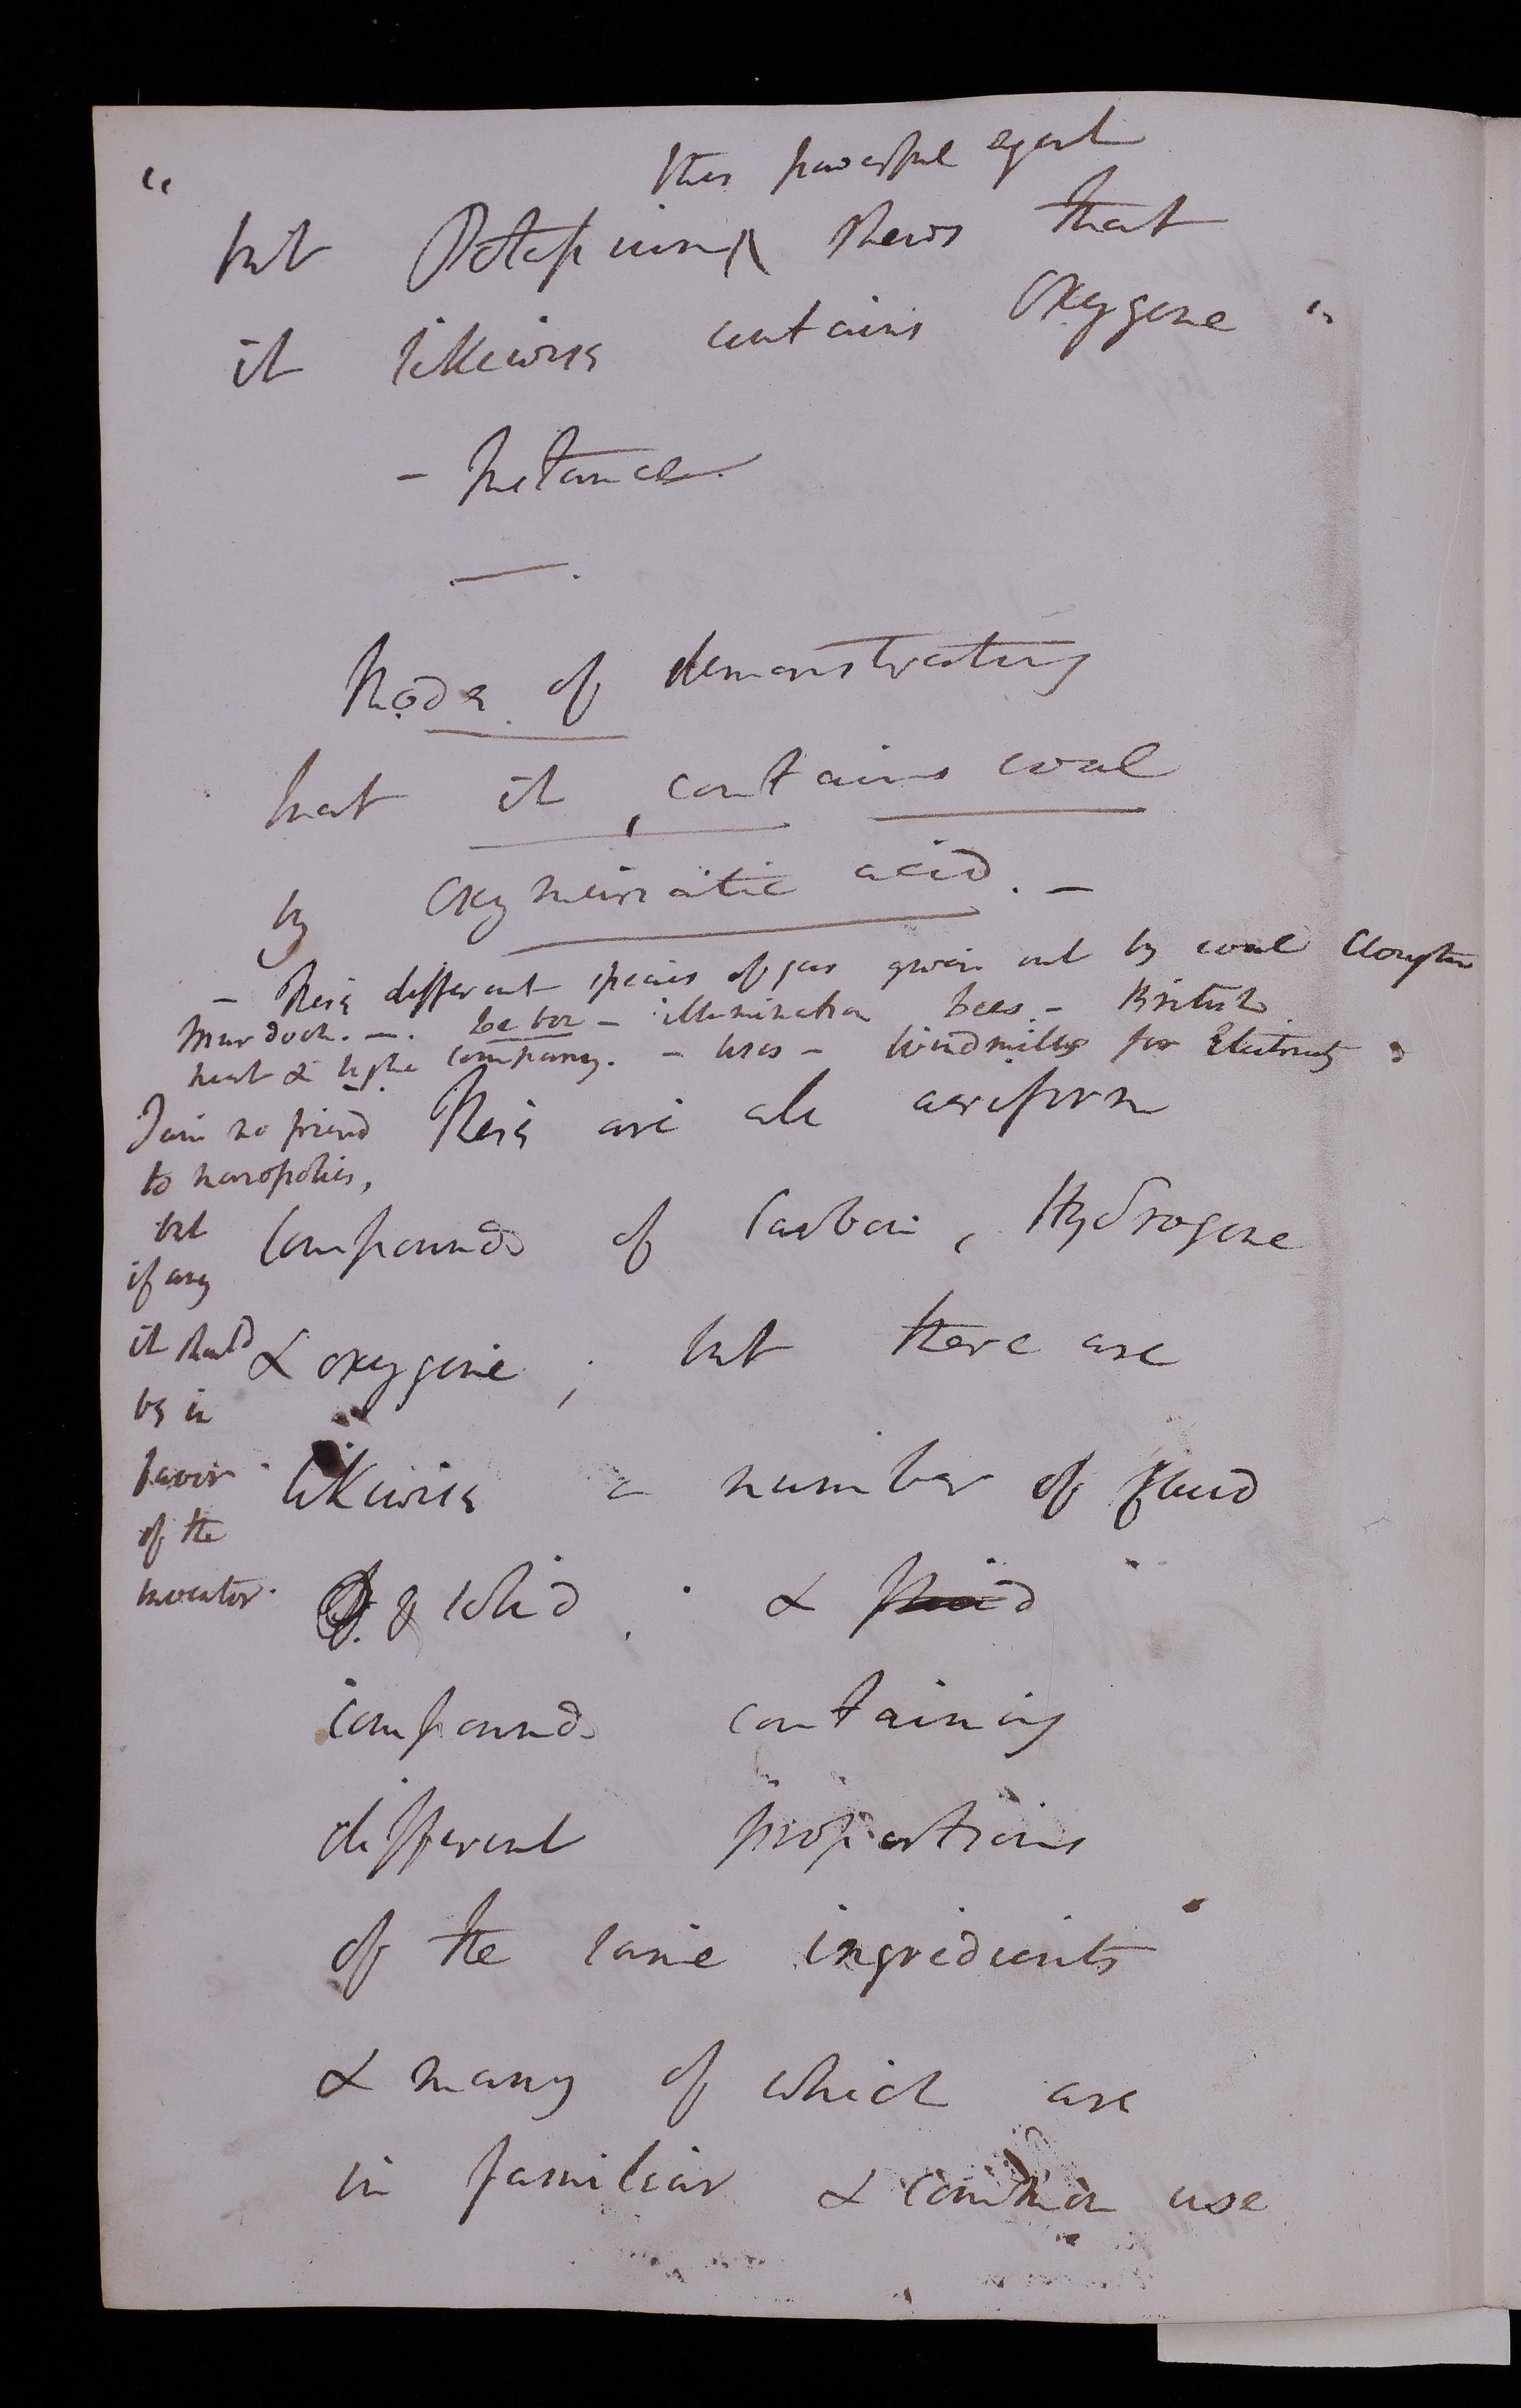 this powerful agent
" but Potassium ^ shews that
it likewise contains Oxygene "
- Instance
Mode of demonstrating
that it contains coal
by Oxymuriatic acid. -
- These different species of gas given out by coal Clayton
Murdoch. -. - illumination - British
heat & light company. - uses - Windmills for Electricity
I am no friend
to monopolies,
but
if any
it should
be in
favor
of the
inventor.
These are all aeriform
Compounds of Carbon, Hydrogene
& oxygene; but there are
likewise a number of fluid
& solid, & fluid
compounds containing
different proportions
of the same ingredients
& many of which are
in familiar & common use